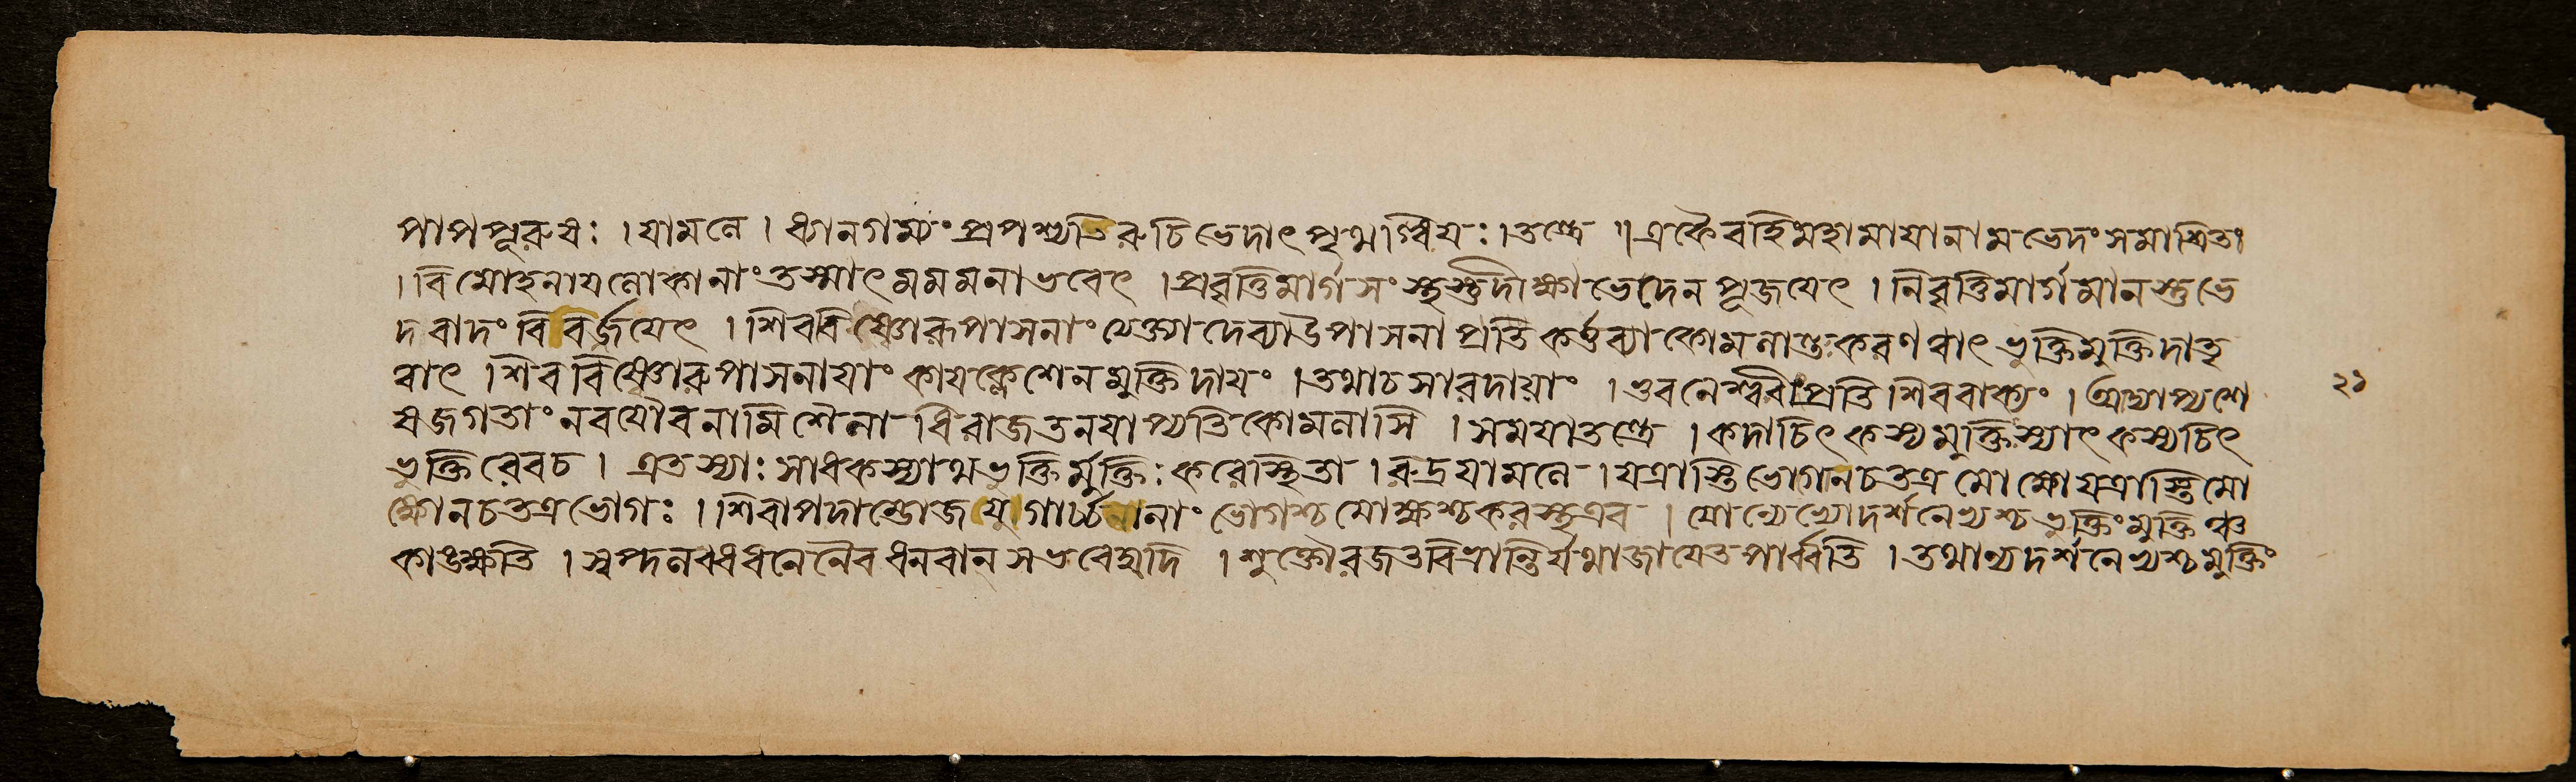 পাপপূরুষঃ । যামলে । ধ্যানগম্যং প্রপশ্যন্তি রুচিভেদাৎ পৃথগ্বিয়ঃ । তন্ত্রে ॥ একৈবহি মহামায়া নামভেদং সমাশ্রিতঃ
। বিমোহনায়লোকানাং তস্মাৎ মমমনাভবেৎ । প্রবৃত্তিমার্গসংস্থস্তুদীক্ষাভেদেন পূজয়েৎ । নিবৃত্তিমার্গমানস্তুভে
দবাদং বিবর্জয়েৎ । শিববিষ্ণোরূপাসনাং থেক্ত্যা দেব্যাউপাসনা প্রতি কর্ত্তব্যা কোমলান্তঃকরণত্বাৎ ভুক্তিমুক্তিদাতৃ
ত্বাৎ । শিববিষ্ণোরুপাসনায়াং কায়ক্লেশেন মুক্তিদায়ং । তথাচ সারদায়াং । ভুবনেশ্বরীং প্রতি শিববাক্যং । অদ্যাপ্যশে
ষজগতাং নবযৌবনাসি শৈলাধিরাজতনয়াপ্যতিকোমলাসি । সময়াতন্ত্রে । কদাচিৎ কস্যমুক্তিঃস্যাৎ কস্যচিৎ
ভুক্তিরেবচ । এতস্যাঃ সাধকস্যাথ ভুক্তির্মুক্তিঃ করেস্থিতা । রুদ্রযামলে । যত্রাস্তি ভোগো নচ তত্র মোক্ষো যত্রাস্তি মো
ক্ষো নচ তত্র ভোগঃ । শিবাপদাম্ভোজযুগার্চ্চকানাং ভোগশ্চ মোক্ষশ্চ করস্থ এব । যোন্যেভ্যোদর্শনেভ্যশ্চ ভুক্তিং মুক্তিঞ্চ
কাঙক্ষতি । স্বপ্নলব্ধধনেনৈব ধনবান্ সভবেদ্যদি । শুক্তৌ রজতবিভ্রান্তির্যথাজায়েত পার্ব্বতি । তথান্যদর্শনেভ্যশ্চ মুক্তিং
২১